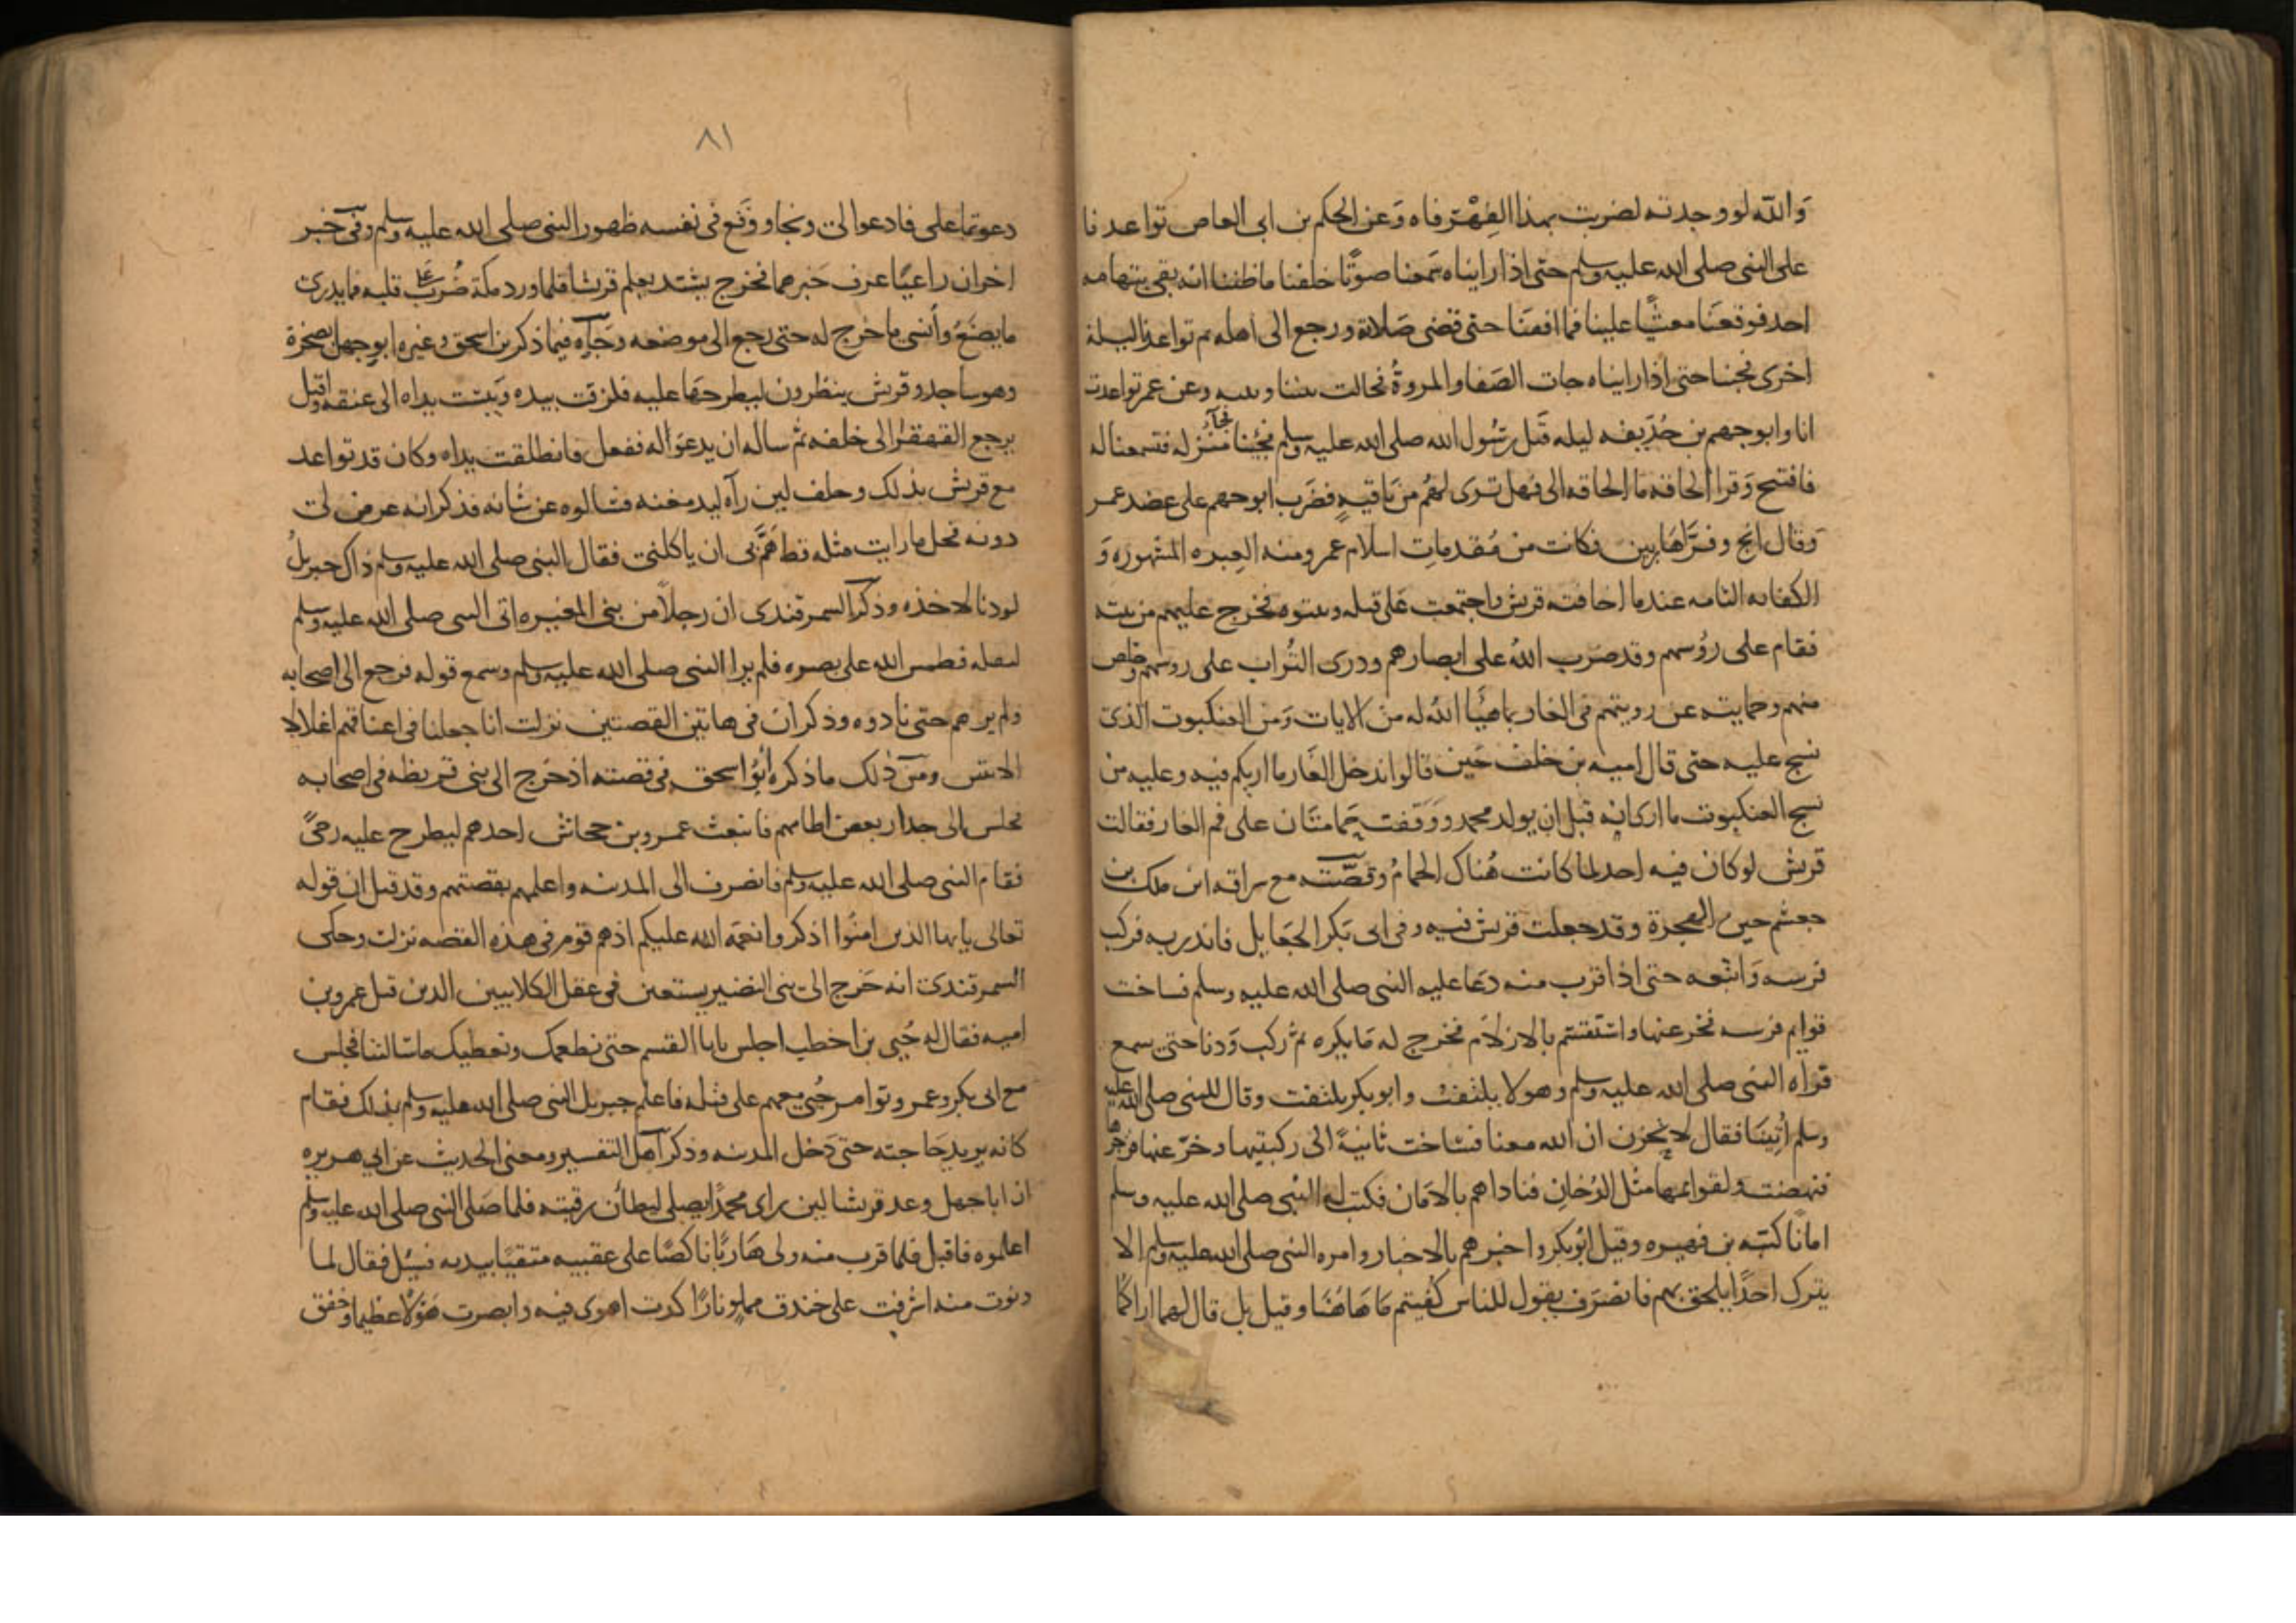 والله لو وجدته لضربت بهذا الفِهْر فاه وَعن الحكم بن ابى العاص تواعدنا
على النبى صلى الله عليه وسلم حتى اذا رايناه سمعنا صوتًا خلفنا ما ظننا انه بقى بتهامه
احد فوقعنا مغشيًّا علينا فما افقنا حتى قضى صَلاته ورجع الى اهله ثم تواعدنا ليلة
اخرى فجئنا حتى اذا رايناه جات الصَفا والمروةُ فحالت بيننا وبينه وعن عمر تواعدت
انا وابو جهم بن حُذَيفه ليله قَتل رسُول الله صلى الله عليه وسلم فجئنا منزله فتسمعنا له
فافتتح وَقرا الحاقه ما الحاقه الى فهل ترى لهُم من بَاقيةٍ فضَرب ابو جهم على عضد عمر
وَقال انج وفرَّا هَاربين فكانت من مُقدماتِ اسلام عمر ومنه العِبره المشهوره وَ
الكفايه التامه عندما اخافته قريش واجتمعت عَلى قتله وبيتوه فخرج عليهم من بيته
فقام على رؤسهم وقد ضرَب اللهُ على ابصارهم وذرى التُراب على روسهم وخلص
منهم وحمايته عن رويتهم فى الغار بما هيَّا اللهُ له من الايات وَمن العنكبوت الذى
نسج عليه حتى قال اميه بن خلف حين قالوا ندخل الغَار ما اربكم فيه وعليه من
نسج العنكبوت ما ارى انه قبل ان يولد محمد وَوَقفت حَمامتَان على فم الغار فقالت
قريش لو كان فيه احد لما كانت هُناك الحمامُ وقصَّته مع سراقه ابن ملك بن
جعشم حين الهجرة وقد جعلت قريش فيه وفى ابى بَكر الجعَايل فانذر به فركب
فرسه وَاتبعه حتى اذا قرب منه دعَا عليه النبى صلى الله عليه وسلم فساخت
قوايم فرسه فخر عنها واستَقسَم بالازلَام فخرج له مَا يكره ثم ركب وَدنا حتى سمع
قراه النبى صلى الله عليه وسلم وهو لا يلتفتُ وابو بكر يلتفت وقال للنبى صلى الله عليه
وسلم اُتِينَا فقال لا تحزن ان الله معنا فسَاخت ثانيةً الى ركبتيها وخرّ عنها فزجرها
فنهضت ولقوايمها مثل الدُخانِ فناداهم بالاَمان فكتب له النبى صلى الله عليه وسلم
امانًا كتبَه بن فهيره وقيل ابُو بكر واخبرهم بالاخبار وامره النبى صلى الله عليه وسلم الا
يترك احدًا يلحق بهم فانصَرف يقول للناس كُفيتم مَا هَاهُنَا وقيل بل قال لهما اراكمَا
٨١
دعوتما على فادعوا لى ونجا ووَقَع فى نفسه ظهور النبى صلى الله عليه وسلم وفى خبر
اخر ان راعيًا عرف خَبرهما فخرج يشتد يعلم قريشًا فلما ورد مكة ضُربَ على قلبه فما يدرى
ما يصَنَعُ وأنسى ما خرج له حتى رجع الى موضعه وجَاءه فيما ذكر بن اسحق وغيره ابو جهل بصخرة
وهو ساجد وقريش ينظرون ليطرحهَا عليه فلزقت بيده ويَبست يداه الى عنقه واقبل
يرجع القهقرا الى خلفه ثم ساله ان يدعوَ اله ففعل فانطلقت يداه وكان قد تواعد
مع قريش بذلك وحلف لين رآه ليدمغنه فسَالوه عن شانه فذكر انه عرض لى
دونه فحل ما رايت مثله قط هَمَّ بى ان ياكلنى فقال النبى صلى الله عليه وسلم ذاك جبريلُ
لو دنا لاخذه وذكر السمرقندى ان رجلاً من بنى المغيره اتى النبى صلى الله عليه وسلم
ليقتله فطمس الله على بصره فلم يرا النبى صلى الله عليه وسلم وسمع قوله فرجع الى اصحابه
ولم يرهم حتى نادوه وذكر ان فى هاتين القصتين نزلت انا جعلنا فى اعناقهم اغلالا
الايتين ومن ذلك ما ذكره ابُو اسحق فى قصته اذ خرج الى بنى قريظه فى اصحابه
فجلس الى جدار بعض اطامهم فانبعث عمرو بن جحاش احدهم ليطرح عليه رحىً
فقام النبى صلى الله عليه وسلم فانصرف الى المدينه واعلمهم بقصتهم وقد قيل ان قوله
تعالى يا يها الذين امنُوا اذكروا نعمَه الله عليكم اذ هم قوم فى هذه القصه نزلت وحكى
السمرقندى انه خَرج الى بنى النضير يستعين فى عقل الكلابيين الذين قتل عمرو بن
اميه فقال له حُيى بن اخطب اجلس يا با القسم حتى نطعمك ونعطيك ما سَالتنا فجلس
مع ابى بكر وعمر وتوامر حُيى معهم على قتله فاعلم جبريل النبى صلى الله عليه وسلم بذلك فقام
كانه يريد حَاجته حتى دَخل المدينه وذكر اهل التفسير ومعنى الحديث عن ابى هريره
ان ابا جهل وعد قريشا لين راى محمدًا يصلى ليطأن رقبته فلما صَلى النبى صلى الله عليه وسلم
اعلموه فاقبل فلما قرب منه ولى هَاربًا ناكصًا على عقبيه متقيًا بيديه فسُئل فقال لما
دنوت منه اشرفت على خندق مملو نارًا كدت اهوى فيه وابصرت هَولًا عظيما وخفق